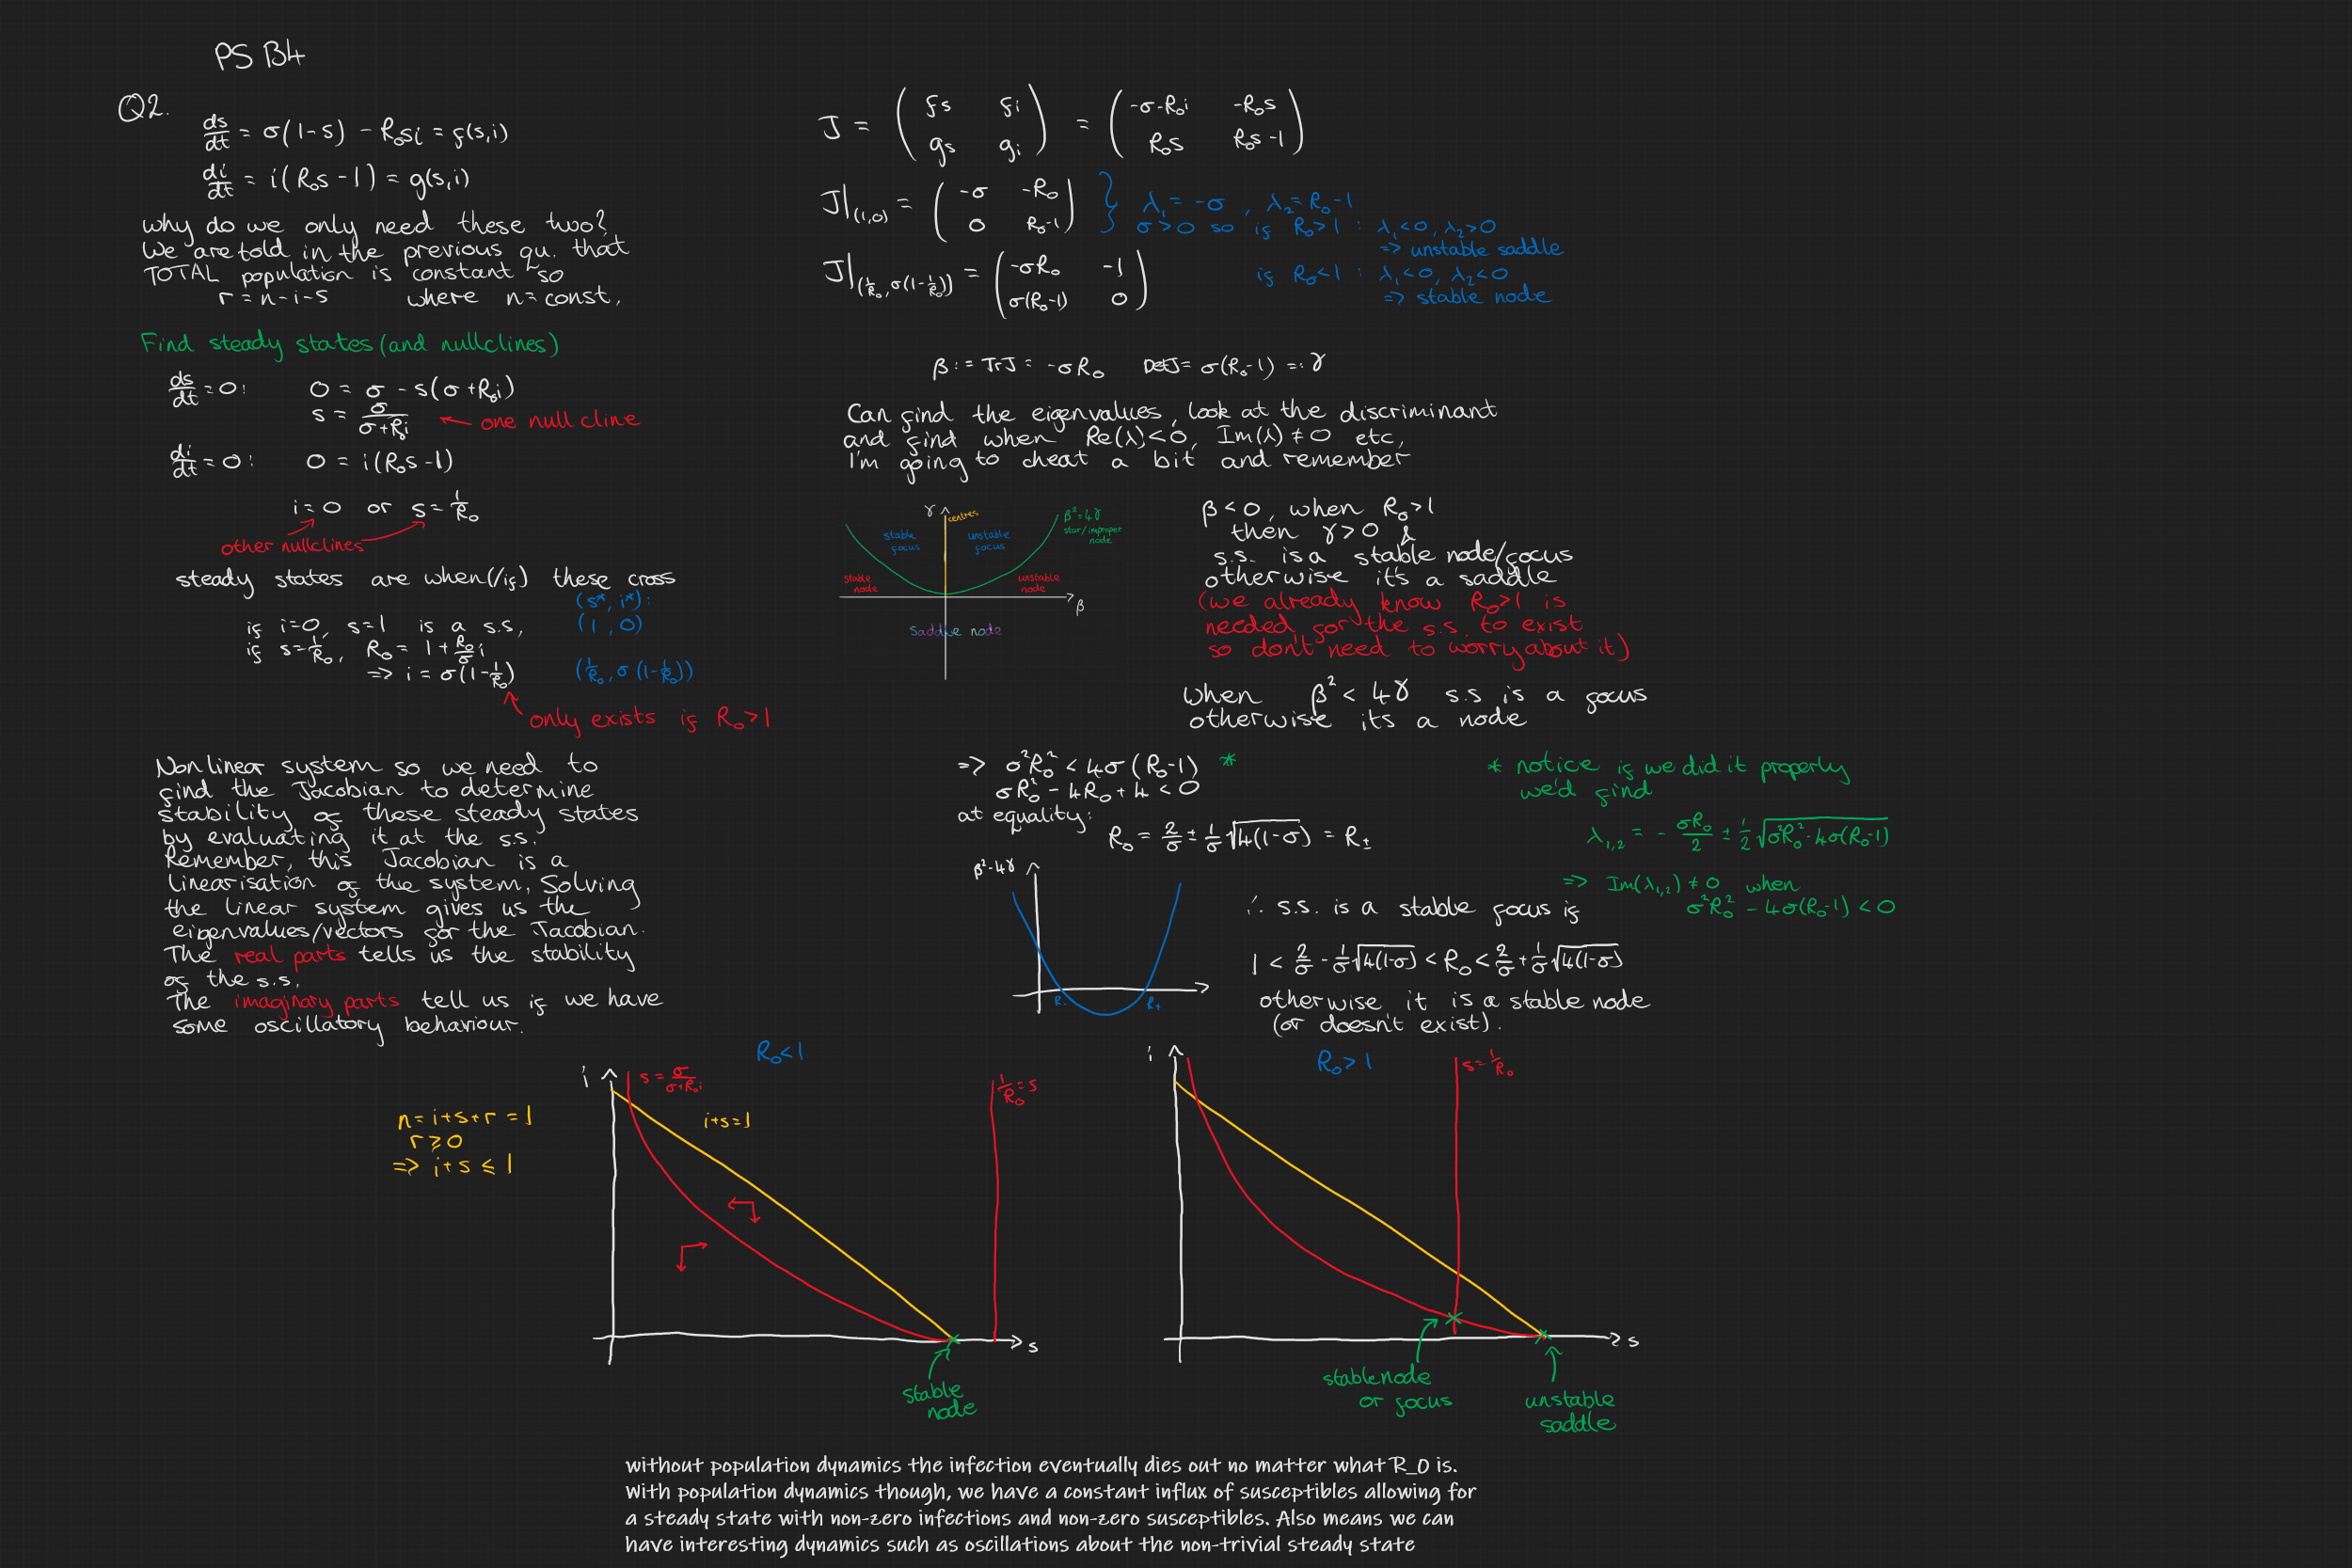 PS B4
Q2.
ds/dt = σ(1-s) - R₀si = f(s,i)
di/dt = i(R₀s-1) = g(s,i)
why do we only need these two?
We are told in the previous qu. that
TOTAL population is constant so
r = n-i-s where n = const.
Find steady states (and nullclines)
ds/dt = 0: 0 = σ - s(σ+R₀i)
s = σ/(σ+R₀i) ← one nullcline
di/dt = 0: 0 = i(R₀s-1)
i = 0 or s = 1/R₀
other nullclines
steady states are when (/if) these cross
(s*, i*):
if i=0, s=1 is a s.s, (1, 0)
if s=1/R₀, R₀ = 1 + R₀/σ i
=> i = σ(1-1/R₀) (1/R₀, σ(1-1/R₀))
only exists if R₀>1
Non linear system so we need to
find the Jacobian to determine
stability of these steady states
by evaluating it at the s.s.
Remember, this Jacobian is a
linearisation of the system. Solving
the linear system gives us the
eigenvalues/vectors for the Jacobian.
The real parts tells us the stability
of the s.s.
The imaginary parts tell us if we have
some oscillatory behaviour.
J = (fs fi; gs gi) = (-σ-R₀i -R₀s; R₀s R₀s-1)
J|(1,0) = (-σ -R₀; 0 R₀-1) } λ₁ = -σ, λ₂ = R₀-1
σ>0 so if R₀>1 : λ₁<0, λ₂>0
=> unstable saddle
if R₀<1 : λ₁<0, λ₂<0
=> stable node
J|(1/R₀, σ(1-1/R₀)) = (-σR₀ -1; σ(R₀-1) 0)
β := TrJ = -σR₀ DetJ = σ(R₀-1) =: γ
Can find the eigenvalues, look at the discriminant
and find when Re(λ)<0, Im(λ)≠0 etc,
I'm going to cheat a bit and remember
γ
centres
β²=4γ
star/improper
node
stable
focus
unstable
focus
stable
node
unstable
node
β
Saddle node
β<0, when R₀>1
then γ>0 &
s.s. is a stable node/focus
otherwise it's a saddle
(we already know R₀>1 is
needed for the s.s. to exist
so don't need to worry about it)
when β² < 4γ s.s is a focus
otherwise its a node
=> σ²R₀² < 4σ(R₀-1) *
σR₀² - 4R₀ + 4 < 0
at equality:
R₀ = 2/σ ± 1/σ √(4(1-σ)) = R±
* notice if we did it properly
we'd find
λ₁,₂ = - σR₀/2 ± 1/2 √(σ²R₀²-4σ(R₀-1))
=> Im(λ₁,₂) ≠ 0 when
σ²R₀² - 4σ(R₀-1) < 0
β²-4γ
R₋
R₊
∴ s.s. is a stable focus if
1 < 2/σ - 1/σ √(4(1-σ)) < R₀ < 2/σ + 1/σ √(4(1-σ))
otherwise it is a stable node
(or doesn't exist).
n = i+s+r = 1
r ≥ 0
=> i+s ≤ 1
R₀<1
i
s = σ/(σ+R₀i)
i+s=1
1/R₀ = s
s
stable
node
R₀>1
i
s = 1/R₀
s
stable node
or focus
unstable
saddle
without population dynamics the infection eventually dies out no matter what R_0 is.
With population dynamics though, we have a constant influx of susceptibles allowing for
a steady state with non-zero infections and non-zero susceptibles. Also means we can
have interesting dynamics such as oscillations about the non-trivial steady state